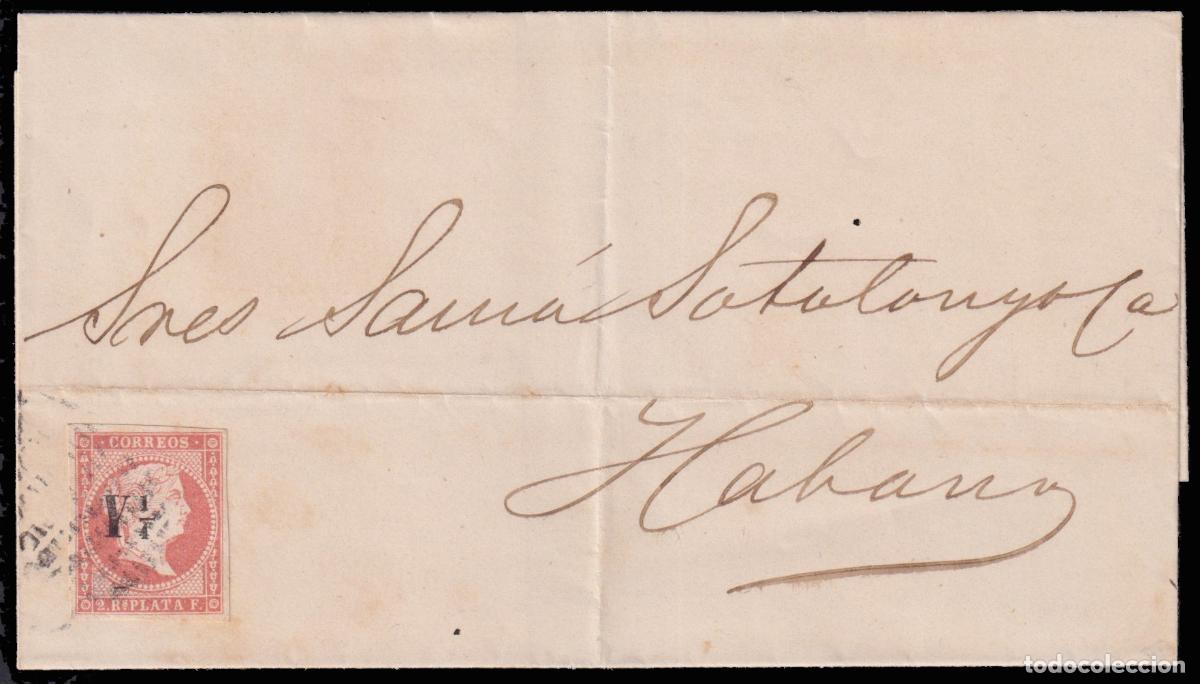 Sres Samá Sotolongo y Ca
Habana
CORREOS
Y 1/4
2. Rs PLATA F.
todocoleccion